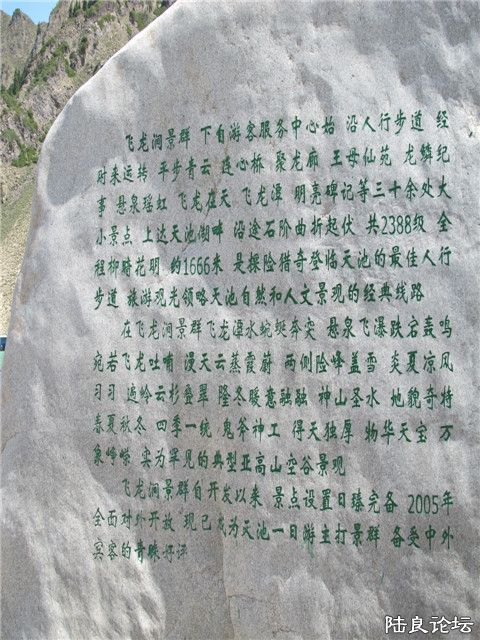 飞龙涧景群 下自游客服务中心始 沿人行步道 经
时来运转 平步青云 连心桥 聚龙廊 王母仙苑 龙鳞纪
事 悬泉瑶虹 飞龙在天 飞龙潭 明亮碑记等三十余处大
小景点 上达天池湖畔 沿途石阶曲折起伏 共2388级 全
程柳暗花明 约1666米 是探险猎奇登临天池的最佳人行
步道 旅游观光领略天池自然和人文景观的经典线路
在飞龙涧景群飞龙潭水蜿蜒奔突 悬泉飞瀑跌宕轰鸣
宛若飞龙吐哺 漫天云蒸霞蔚 两侧险峰盖雪 炎夏凉风
习习 遮岭云杉叠翠 隆冬暖意融融 神山圣水 地貌奇特
春夏秋冬 四季一统 鬼斧神工 得天独厚 物华天宝 万
象峥嵘 实为罕见的典型亚高山空谷景观
飞龙涧景群自开发以来 景点设置日臻完备 2005年
全面对外开放 现已成为天池一日游主打景群 备受中外
宾客的青睐好评
陆良论坛